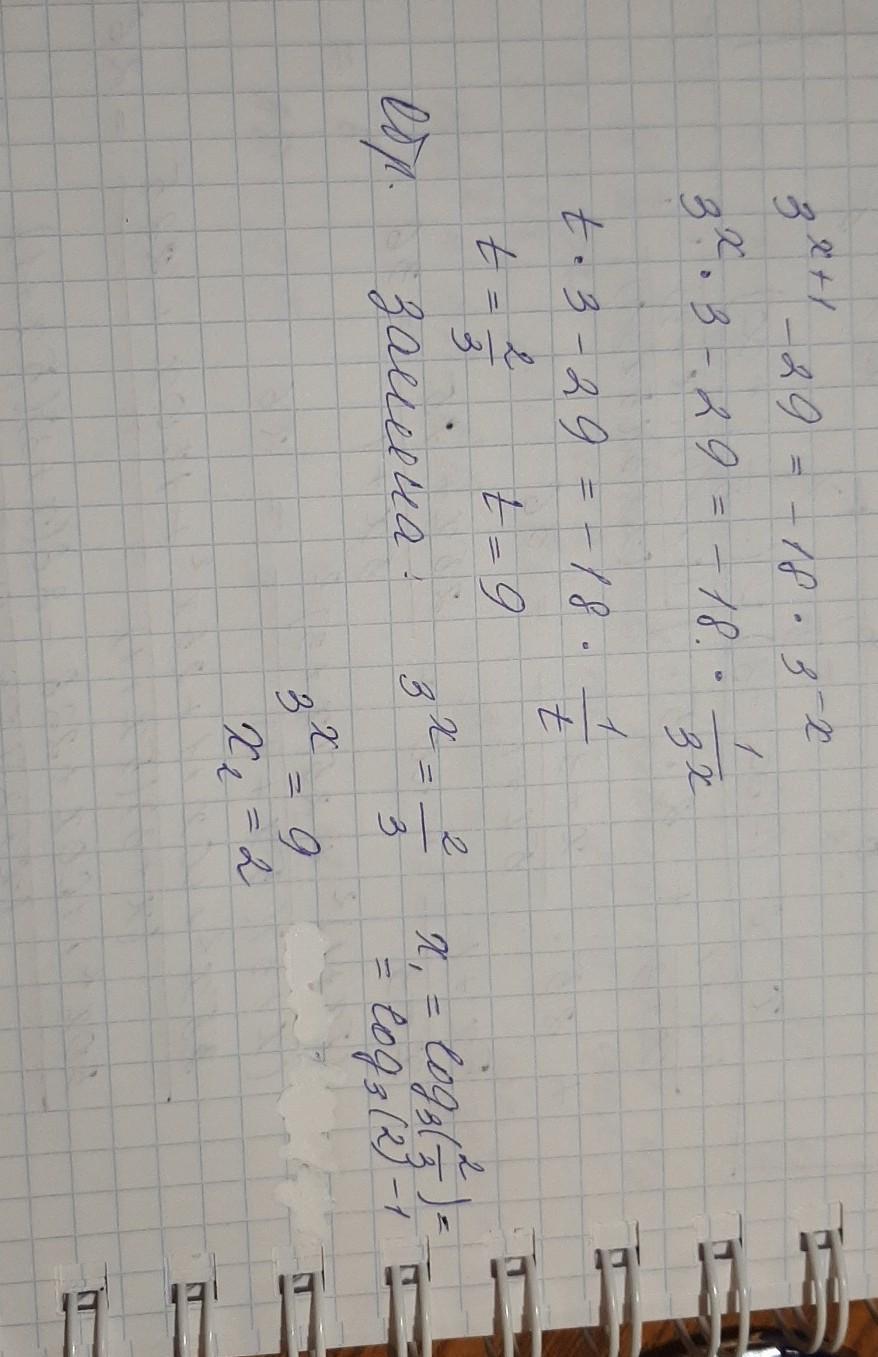 3^{x+1} - 29 = -18 · 3^{-x}
3^x · 3 - 29 = -18 · \frac{1}{3^x}
t · 3 - 29 = -18 · \frac{1}{t}
t = \frac{2}{3} t = 9
Обр. замена: 3^x = \frac{2}{3} x_1 = log_3(\frac{2}{3}) =
= log_3(2) - 1
3^x = 9
x_2 = 2